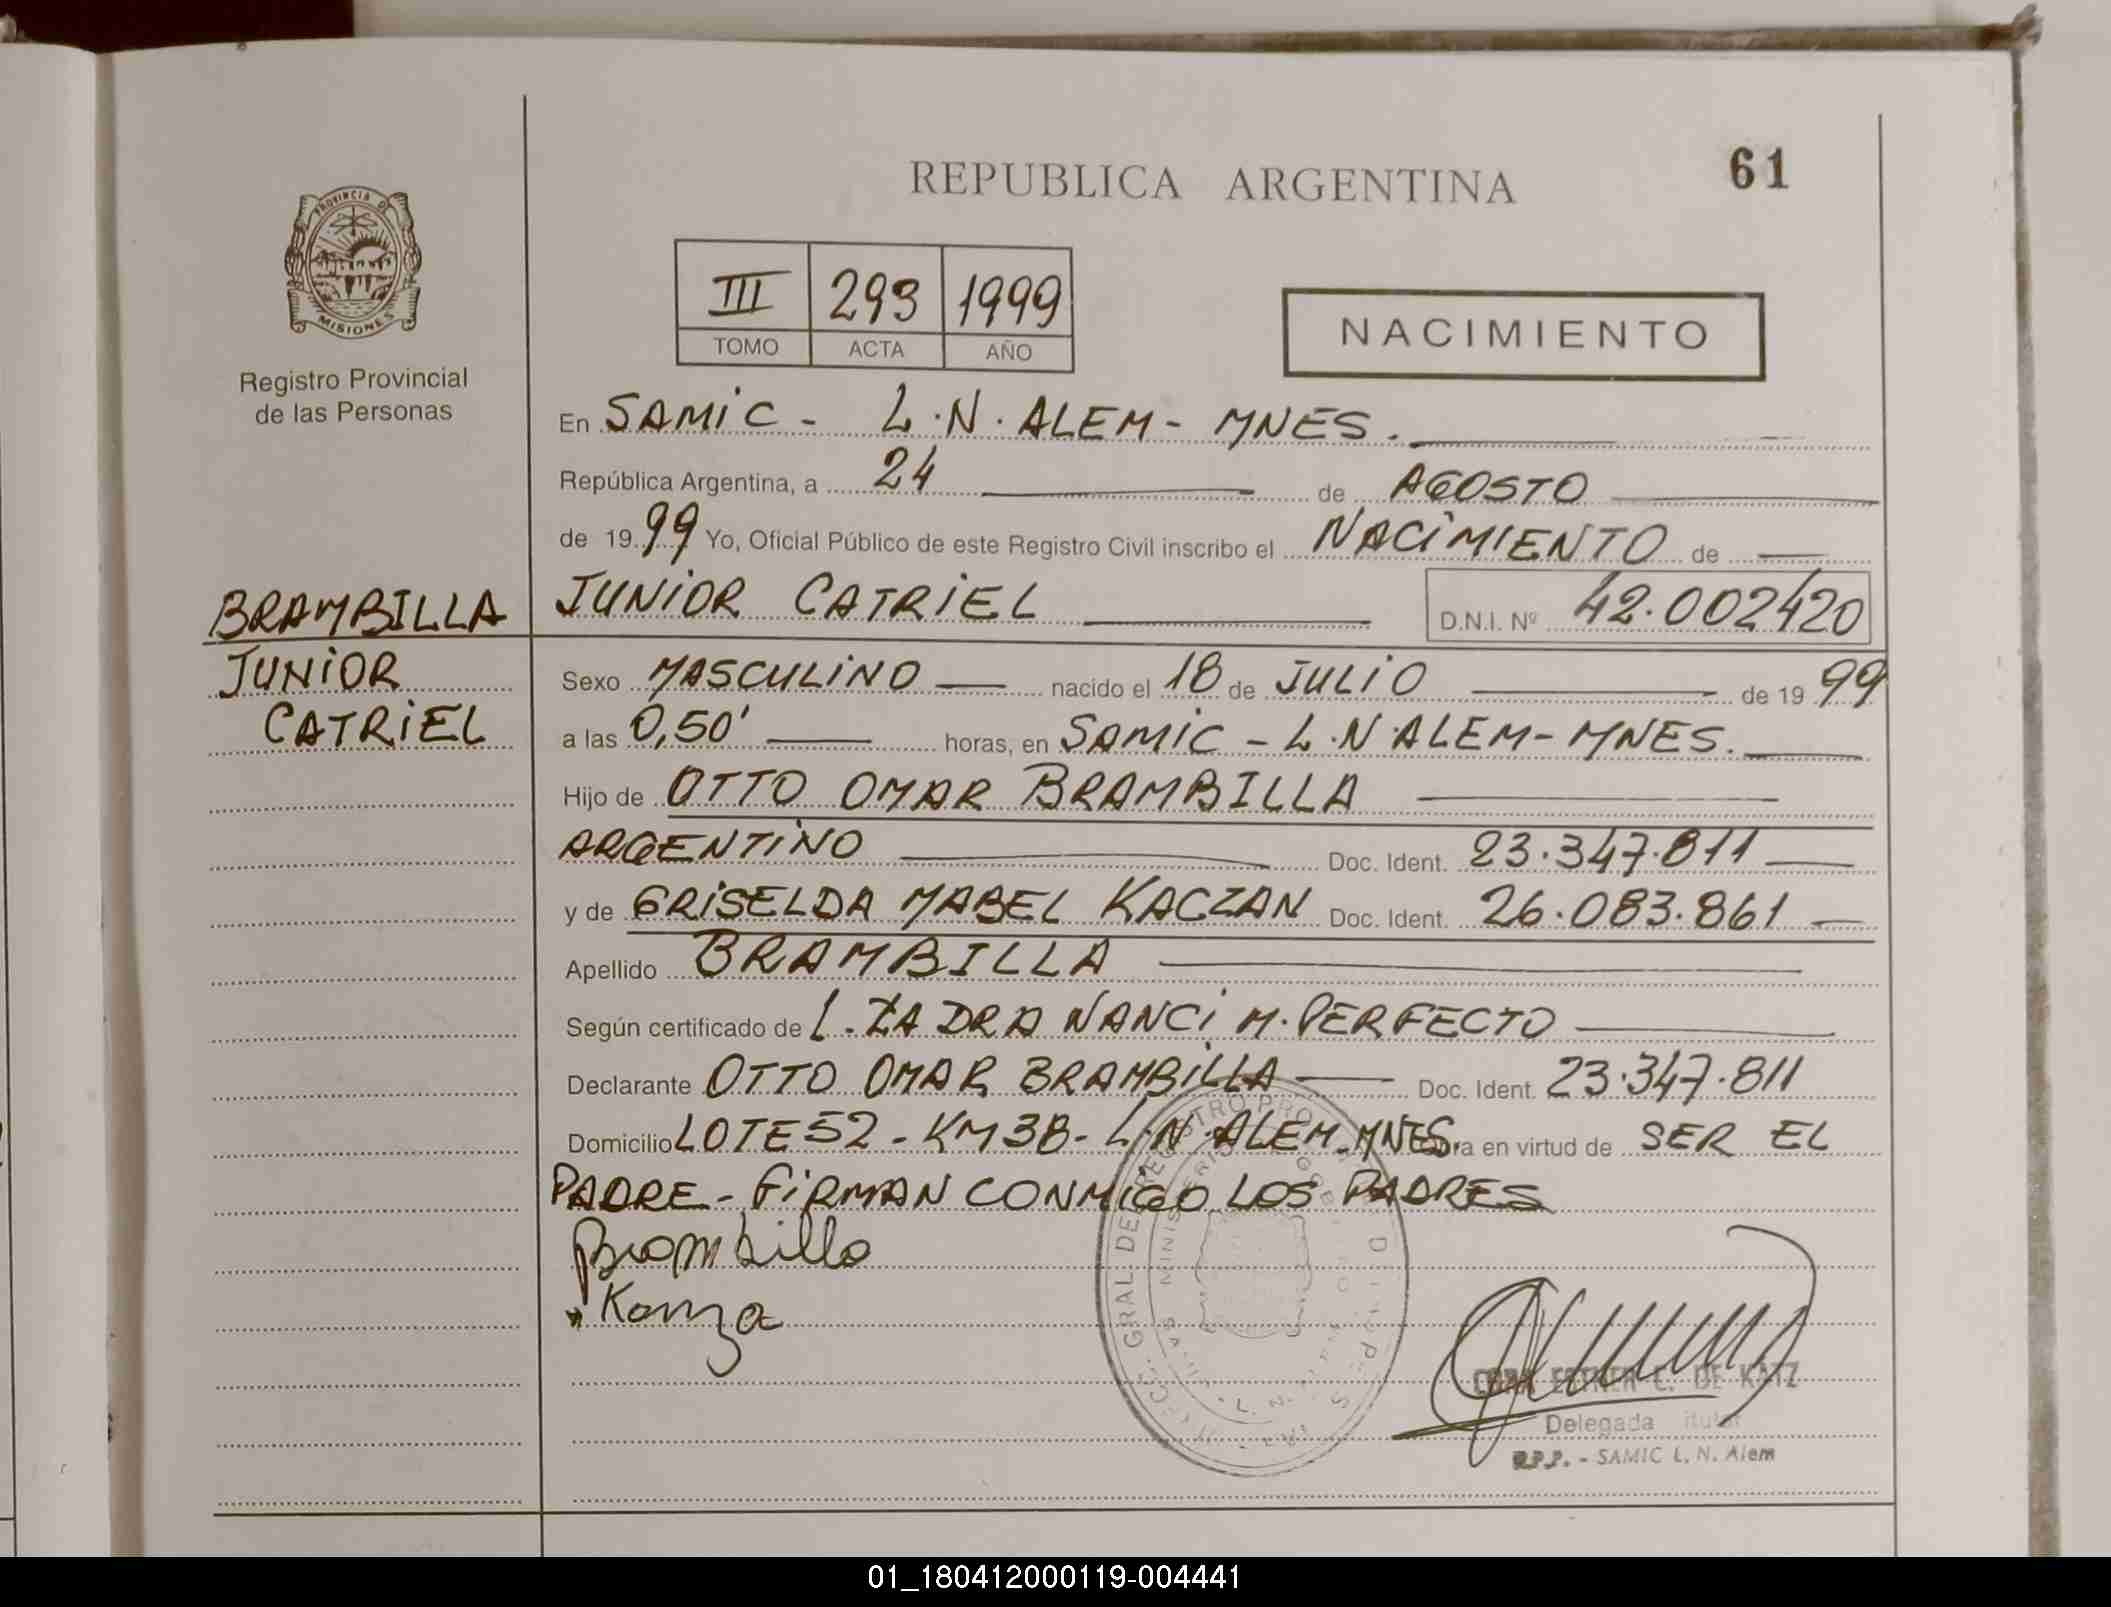 REPUBLICA ARGENTINA
61
PROVINCIA DE
MISIONES
Registro Provincial
de las Personas
III 293 1999
TOMO ACTA AÑO
NACIMIENTO
En SAMIC - L.N. ALEM - MNES.
República Argentina, a 24 de AGOSTO
de 19 99 Yo, Oficial Público de este Registro Civil inscribo el NACIMIENTO de
JUNIOR CATRIEL D.N.I. Nº 42.002420
BRAMBILLA
JUNIOR
CATRIEL
Sexo MASCULINO nacido el 18 de JULIO de 19 99
a las 0,50' horas, en SAMIC - L.N. ALEM - MNES.
Hijo de OTTO OMAR BRAMBILLA
ARGENTINO Doc. Ident. 23.347.811
y de GRISELDA MABEL KACZAN Doc. Ident. 26.083.861
Apellido BRAMBILLA
Según certificado de L. ZADRA NANCI M. PERFECTO
Declarante OTTO OMAR BRAMBILLA Doc. Ident. 23.347.811
Domicilio LOTE 52 - KM 38 - L.N. ALEM. MNES. en virtud de SER EL
PADRE - FIRMAN CONMIGO LOS PADRES
Brambilla
Kanza
ESTHER C. DE KATZ
Delegada
R.P.P. - SAMIC L. N. Alem
01_180412000119-004441